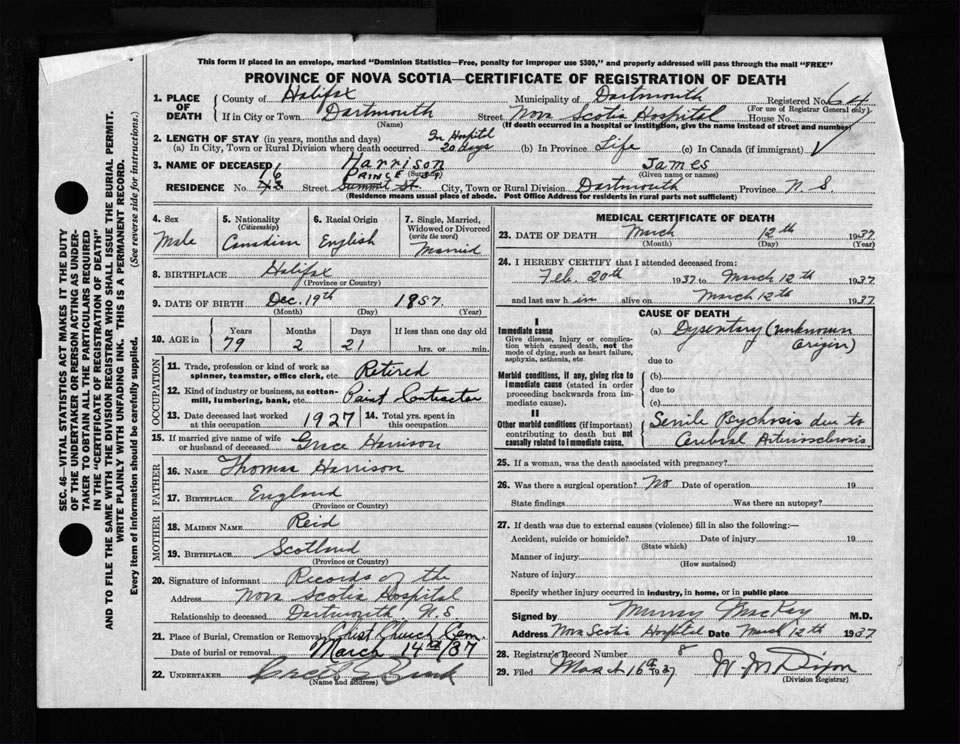 This form if placed in an envelope, marked "Dominion Statistics—Free, penalty for improper use $300," and properly addressed will pass through the mail "FREE"
PROVINCE OF NOVA SCOTIA—CERTIFICATE OF REGISTRATION OF DEATH
SEC. 46—VITAL STATISTICS ACT MAKES IT THE DUTY
OF THE UNDERTAKER OR PERSON ACTING AS UNDER-
TAKER TO OBTAIN ALL THE PARTICULARS REQUIRED
IN THE "CERTIFICATE OF REGISTRATION OF DEATH"
AND TO FILE THE SAME WITH THE DIVISION REGISTRAR WHO SHALL ISSUE THE BURIAL PERMIT.
WRITE PLAINLY WITH UNFADING INK. THIS IS A PERMANENT RECORD.
Every item of information should be carefully supplied. (See reverse side for instructions.)
1. PLACE OF DEATH County of Halifax Municipality of Dartmouth Registered No. 64
(For use of Registrar General only)
If in City or Town Dartmouth Street Nova Scotia Hospital House No.
(Name) (If death occurred in a hospital or institution, give the name instead of street and number)
2. LENGTH OF STAY (in years, months and days) In Hospital
(a) In City, Town or Rural Division where death occurred 20 days (b) In Province Life (c) In Canada (if immigrant)
3. NAME OF DECEASED Harrison James
(Surname) (Given name or names)
16 PRINCE ST
RESIDENCE No. Street Summit St. City, Town or Rural Division Dartmouth Province N S
(Residence means usual place of abode. Post Office Address for residents in rural parts not sufficient)
4. Sex Male
5. Nationality (Citizenship) Canadian
6. Racial Origin English
7. Single, Married, Widowed or Divorced (write the word) Married
8. BIRTHPLACE Halifax
(Province or Country)
9. DATE OF BIRTH Dec. 19th 1857.
(Month) (Day) (Year)
10. AGE in Years 79 Months 2 Days 21 If less than one day old hrs. or min.
OCCUPATION
11. Trade, profession or kind of work as spinner, teamster, office clerk, etc. Retired
12. Kind of industry or business, as cotton-mill, lumbering, bank, etc. Paint Contractor
13. Date deceased last worked at this occupation 1927
14. Total yrs. spent in this occupation
15. If married give name of wife or husband of deceased Grace Harrison
FATHER
16. NAME Thomas Harrison
17. BIRTHPLACE England
(Province or Country)
MOTHER
18. MAIDEN NAME Reid
19. BIRTHPLACE Scotland
(Province or Country)
20. Signature of informant Records of the
Address Nova Scotia Hospital
Relationship to deceased Dartmouth N.S
21. Place of Burial, Cremation or Removal Christ Church Cem.
Date of burial or removal March 14th/37
22. UNDERTAKER
(Name and address)
MEDICAL CERTIFICATE OF DEATH
23. DATE OF DEATH March 12th 1937
(Month) (Day) (Year)
24. I HEREBY CERTIFY that I attended deceased from:
Feb. 20th 1937 to March 12th 1937
and last saw him alive on March 12th 1937
CAUSE OF DEATH
I
Immediate cause
Give disease, injury or complication which caused death, not the mode of dying, such as heart failure, asphyxia, asthenia, etc.
(a) Dysentary (unknown
origin)
due to
Morbid conditions, if any, giving rise to immediate cause (stated in order proceeding backwards from immediate cause).
(b)
due to
(c)
II
Other morbid conditions (if important) contributing to death but not causally related to immediate cause.
Senile Psychosis due to
Cerebral Arteriosclerosis
25. If a woman, was the death associated with pregnancy?
26. Was there a surgical operation? No Date of operation 19
State findings Was there an autopsy?
27. If death was due to external causes (violence) fill in also the following:—
Accident, suicide or homicide? Date of injury 19
(State which)
Manner of injury
(How sustained)
Nature of injury
Specify whether injury occurred in industry, in home, or in public place
Signed by Murray MacKay M.D.
Address Nova Scotia Hospital Date March 12th 1937
28. Registrar's Record Number 8
29. Filed March 16th 1937 W M Dixon
(Division Registrar)